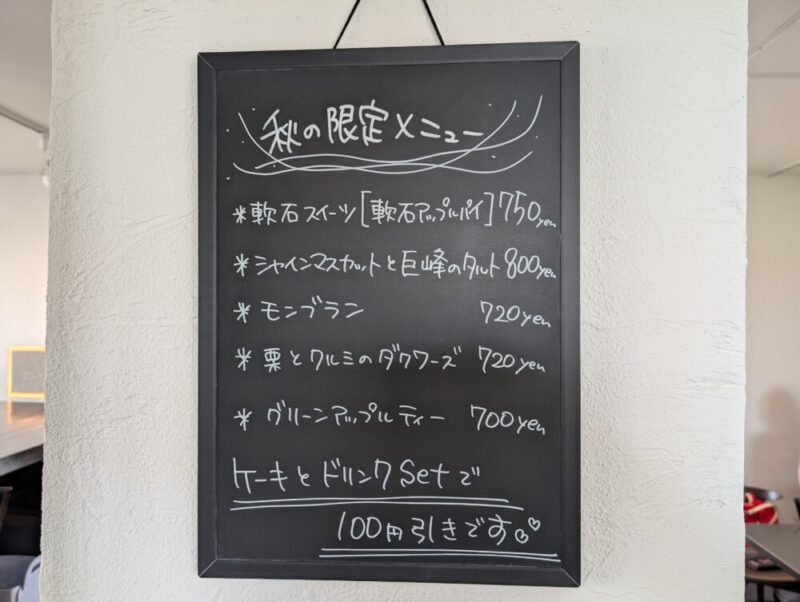 秋の限定メニュー
*軟石スイーツ[軟石アップルパイ]750yen
*シャインマスカットと巨峰のタルト800yen
*モンブラン 720yen
*栗とクルミのダクワーズ 720yen
*グリーンアップルティー 700yen
ケーキとドリンクSetで
100円引きです♡♡